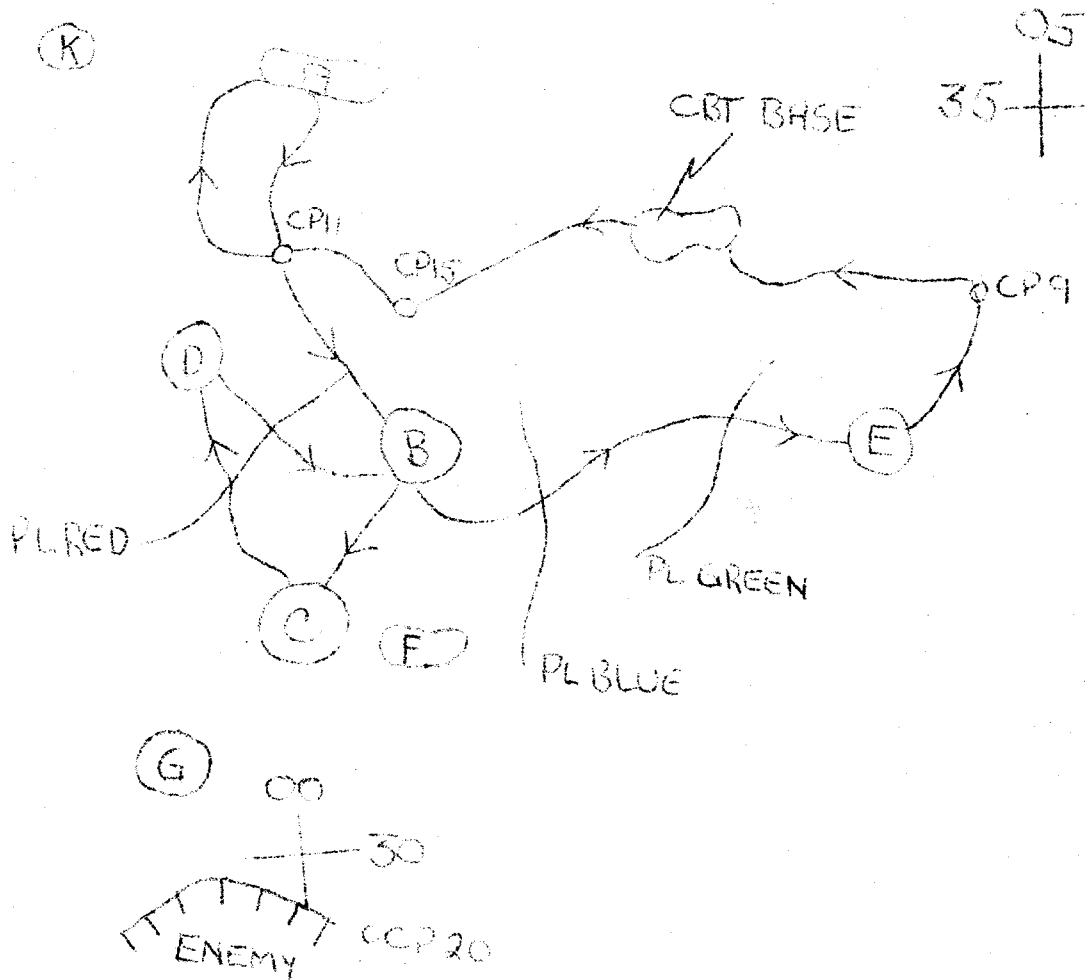 K
05
35
CBT BHSE
CP11
CP15
CP9
D
B
E
PL RED
PL GREEN
C
F
PL BLUE
G
00
30
ENEMY
CCP 20